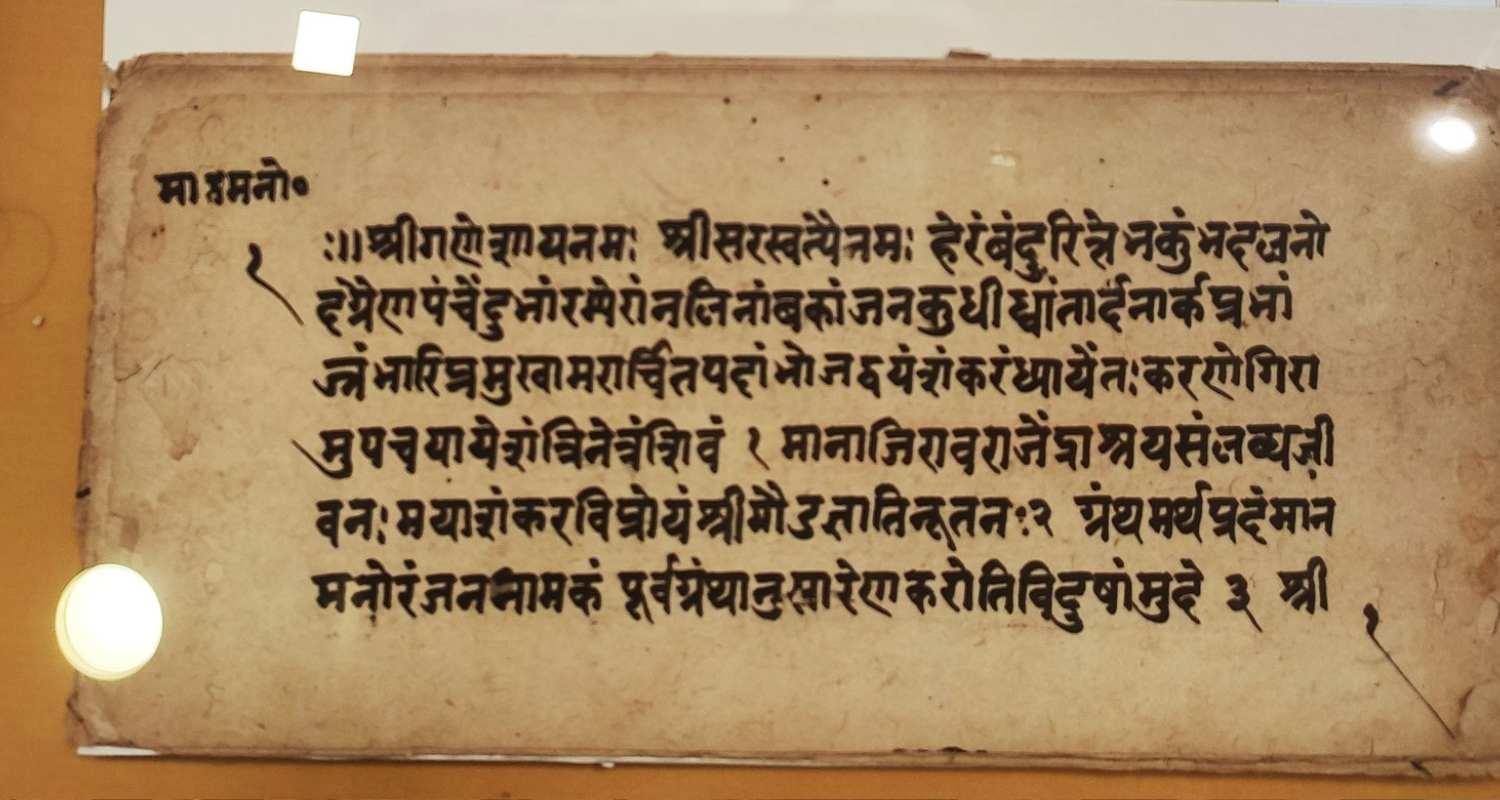 मानमनो०
१
:॥श्रीगणेशायनमः श्रीसरस्वत्यैनमः हेरंबंदुरितेभकुंभदलनो
द्दंग्रेणपंचेंदुभांरम्येरांनलिनांबकांजनकुधीध्वांतार्दनार्कप्रभां
जंभारिप्रमुखामरार्चितपदांभोजद्वयंशंकरंध्यायेंतःकरणेगिरा
मुपचयायेशंत्रिनेत्रंशिवं १ मानाजिरावराजेंद्राश्रयसंलब्धजी
वनः मयाशंकरविप्रोयंश्रीगौडज्ञातिनूतनः२ ग्रंथमर्थप्रदंमान
मनोरंजननामकं पूर्वग्रंथानुसारेणकरोतिविदुषांमुदे ३ श्री
१